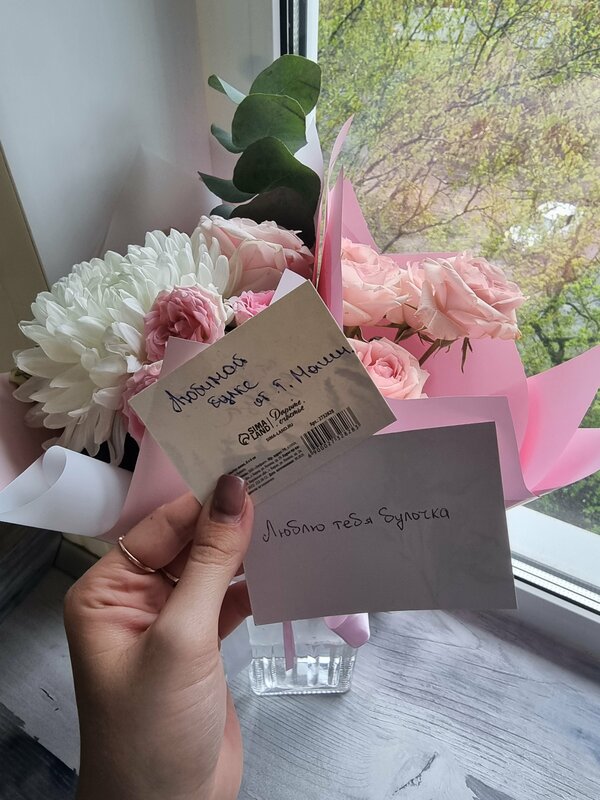 Любимой
булке
от Т. Маши
SIMA LAND
Дарите счастье
SIMA-LAND.RU
Люблю тебя булочка